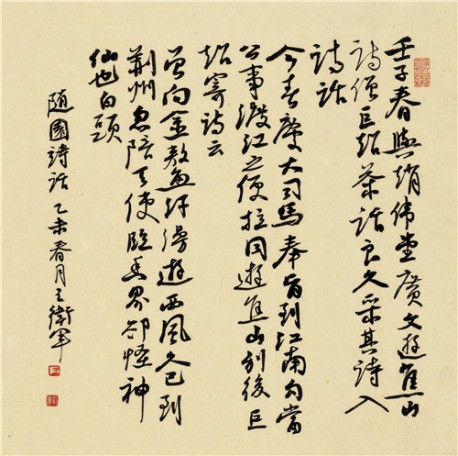 壬子春與趙偉堂廣文遊焦山
詩僧巨超茶話良久采其詩入
詩話
今春慶大司馬奉旨到江南勾當
公事渡江之便拉同遊焦山別後巨
超寄詩云
曾向金鰲汗漫遊西風久已到
荊州忽陪天使臨香界卻怪神
仙也白頭
隨園詩話 乙未春月王衛軍